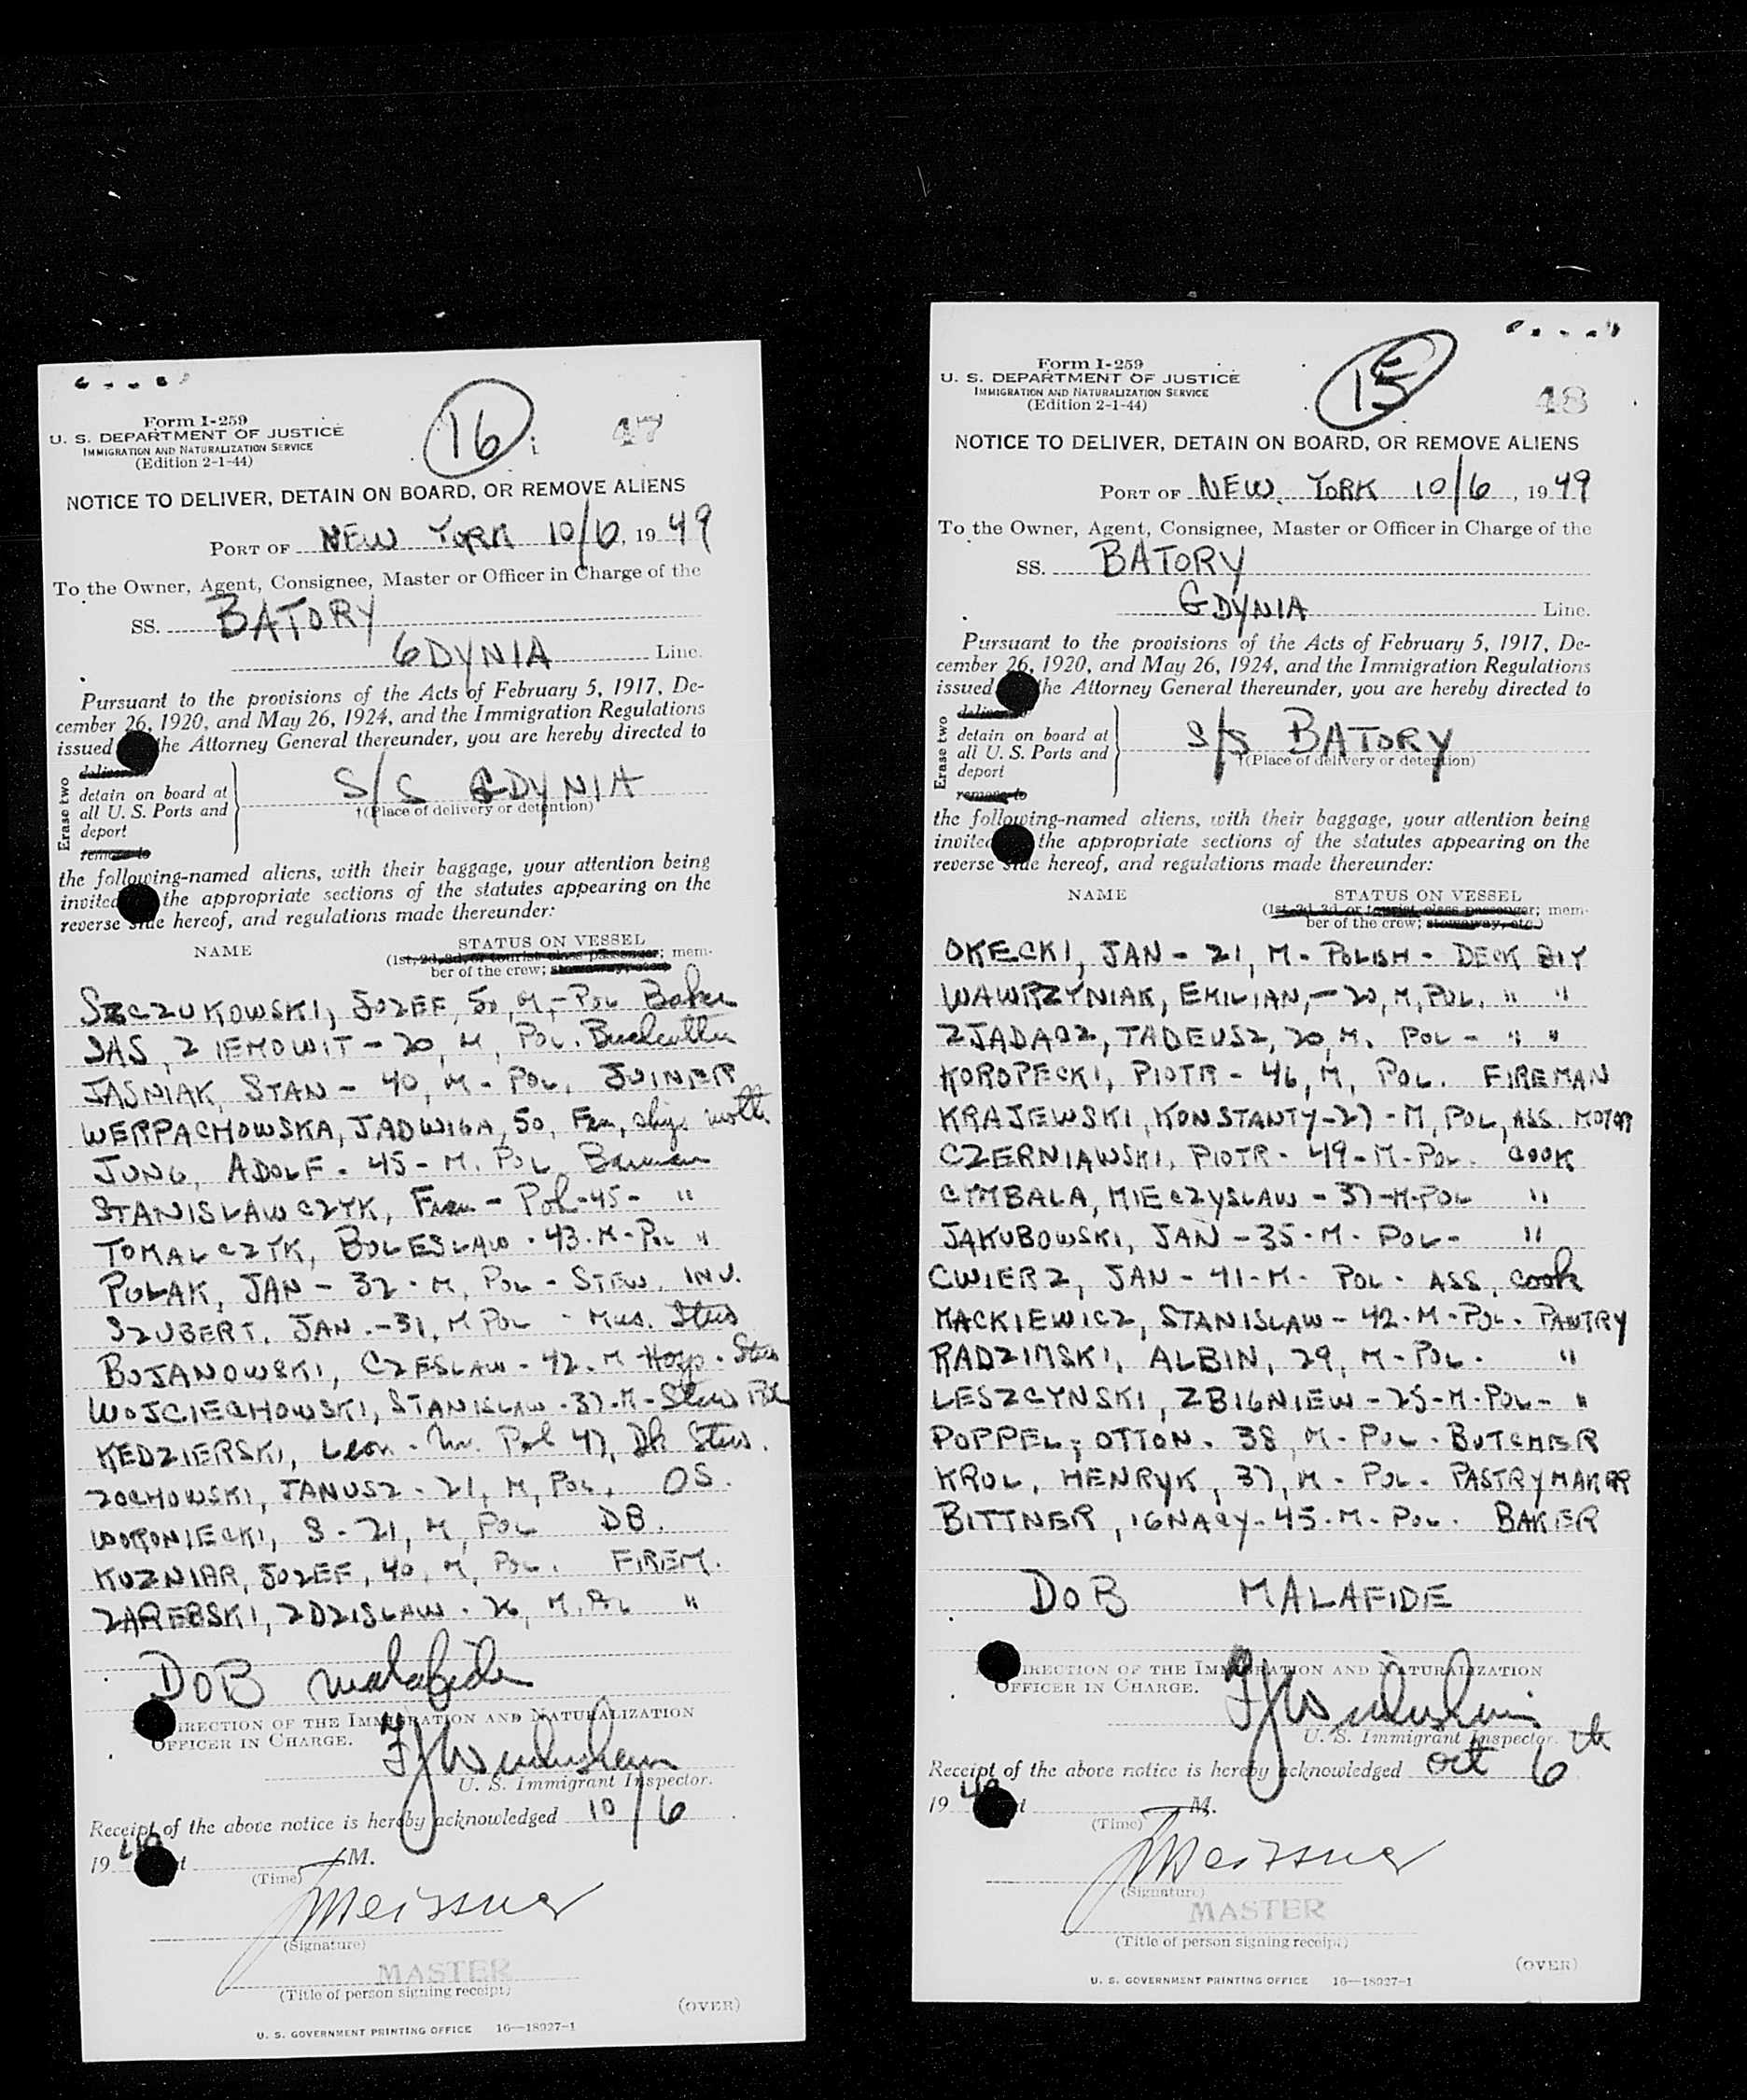 16
47
Form I-259
U. S. DEPARTMENT OF JUSTICE
IMMIGRATION AND NATURALIZATION SERVICE
(Edition 2-1-44)
NOTICE TO DELIVER, DETAIN ON BOARD, OR REMOVE ALIENS
PORT OF NEW YORK 10/6, 19 49
To the Owner, Agent, Consignee, Master or Officer in Charge of the
SS. BATORY
GDYNIA Line.
Pursuant to the provisions of the Acts of February 5, 1917, De-
cember 26, 1920, and May 26, 1924, and the Immigration Regulations
issued the Attorney General thereunder, you are hereby directed to
Erase two
deliver to
detain on board at
all U. S. Ports and
deport
remove to
S/S GDYNIA
†(Place of delivery or detention)
the following-named aliens, with their baggage, your attention being
invited the appropriate sections of the statutes appearing on the
reverse side hereof, and regulations made thereunder:
NAME STATUS ON VESSEL
(1st, 2d, 3d, or tourist class passenger; mem-
ber of the crew; stowaway, etc.)
SZCZUKOWSKI, JOZEF, 50, M, - POL Baker
SAS, ZIEMOWIT - 20, M, POL.
JASNIAK, STAN - 40, M - POL. JOINER
WERPACHOWSKA, JADWIGA, 50, Fem,
JUNG, ADOLF - 45 - M. POL Barman
STANISLAWCZYK, Fran - Pol - 45 - "
TOMALCZYK, BOLESLAW - 43 - M - POL "
POLAK, JAN - 32 - M, POL - STEW. INV.
SZUBERT, JAN - 31, M POL - Mus. Stew
BOJANOWSKI, CZESLAW - 42 - M Hosp - Stew
WOJCIECHOWSKI, STANISLAW - 37 - M - Stew Pol
KEDZIERSKI, Leon - M. Pol 47, Dk Stew.
ZOCHOWSKI, JANUSZ - 21, M, POL, OS.
WORONIECKI, S - 21, M, POL DB.
KUZNIAR, JOZEF, 40, M, POL. FIREM.
ZAREBSKI, ZDZISLAW - 26, M. POL "
DOB malafide
DIRECTION OF THE IMMIGRATION AND NATURALIZATION
OFFICER IN CHARGE.
U. S. Immigrant Inspector.
Receipt of the above notice is hereby acknowledged 10/6
19 49 at M.
(Time)
Meissner
(Signature)
MASTER
(Title of person signing receipt)
(OVER)
U. S. GOVERNMENT PRINTING OFFICE 16—18927-1
15
48
Form I-259
U. S. DEPARTMENT OF JUSTICE
IMMIGRATION AND NATURALIZATION SERVICE
(Edition 2-1-44)
NOTICE TO DELIVER, DETAIN ON BOARD, OR REMOVE ALIENS
PORT OF NEW YORK 10/6, 19 49
To the Owner, Agent, Consignee, Master or Officer in Charge of the
SS. BATORY
GDYNIA Line.
Pursuant to the provisions of the Acts of February 5, 1917, De-
cember 26, 1920, and May 26, 1924, and the Immigration Regulations
issued the Attorney General thereunder, you are hereby directed to
Erase two
deliver to
detain on board at
all U. S. Ports and
deport
remove to
S/S BATORY
†(Place of delivery or detention)
the following-named aliens, with their baggage, your attention being
invited the appropriate sections of the statutes appearing on the
reverse side hereof, and regulations made thereunder:
NAME STATUS ON VESSEL
(1st, 2d, 3d, or tourist class passenger; mem-
ber of the crew; stowaway, etc.)
OKECKI, JAN - 21, M - POLISH - DECK BOY
WAWRZYNIAK, EMILIAN, - 20, M, POL. " "
ZJADACZ, TADEUSZ, 20, M. POL - " "
KOROPECKI, PIOTR - 46, M, POL. FIREMAN
KRAJEWSKI, KONSTANTY - 27 - M, POL, ASS. MOTOR
CZERNIAWSKI, PIOTR - 49 - M - POL. COOK
CYMBALA, MIECZYSLAW - 37 - M - POL "
JAKUBOWSKI, JAN - 35 - M - POL - "
CWIERZ, JAN - 41 - M - POL - ASS, COOK
MACKIEWICZ, STANISLAW - 42 - M - POL - PANTRY
RADZIMSKI, ALBIN, 29, M - POL. "
LESZCYNSKI, ZBIGNIEW - 25 - M - POL - "
POPPEL, OTTON - 38, M - POL - BUTCHER
KROL, HENRYK, 37, M - POL - PASTRYMAKER
BITTNER, IGNACY - 45 - M - POL. BAKER
DOB MALAFIDE
DIRECTION OF THE IMMIGRATION AND NATURALIZATION
OFFICER IN CHARGE.
U. S. Immigrant Inspector.
Receipt of the above notice is hereby acknowledged Oct 6th
19 49 at M.
(Time)
Meissner
(Signature)
MASTER
(Title of person signing receipt)
(OVER)
U. S. GOVERNMENT PRINTING OFFICE 16—18927-1